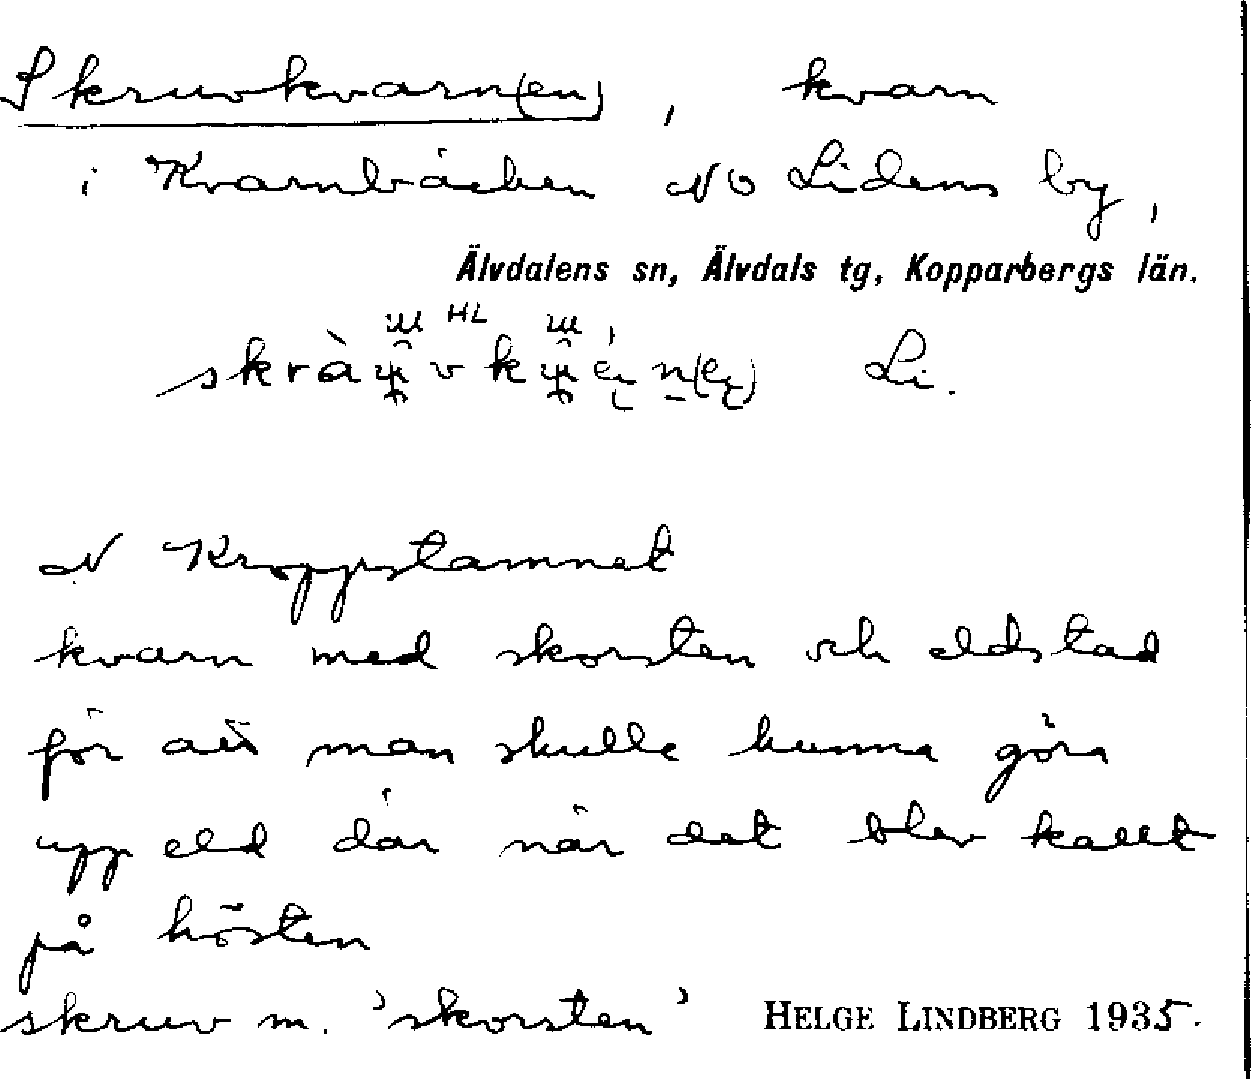 Skruvkvarn(en), kvarn
i Kvarnbäcken NO Lidens by,
Älvdalens sn, Älvdals tg, Kopparbergs län.
HL
Li.
N Kroppstamnet
kvarn med skorsten och eldstad
för att man skulle kunna göra
upp eld där när det blev kallt
på hösten
skruv m. 'skorsten' HELGE LINDBERG 1935.